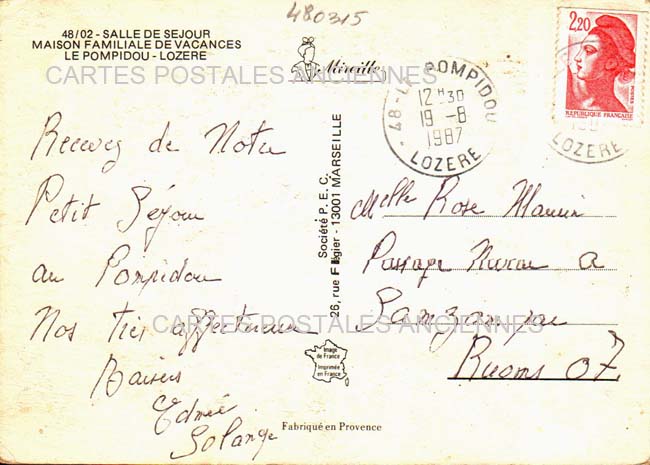 480315
48/02 - SALLE DE SEJOUR
MAISON FAMILIALE DE VACANCES
LE POMPIDOU - LOZERE
Mireille
CARTES POSTALES ANCIENNES
48 - LE POMPIDOU
12 H 30
19 - 8
1987
LOZERE
2,20
POSTES
REPUBLIQUE FRANÇAISE
LOZERE
Recevez de Notre
Petit Séjour
au Pompidou
Nos Très affectueux
Baisers
Edmée
Solange
Société P.E.C.
26, rue F gier - 13001 MARSEILLE
Melle Rose
Passage a
Sampzon par
Ruoms 07
CARTES POSTALES ANCIENNES
Image
de France
Imprimée
en France
Fabriqué en Provence